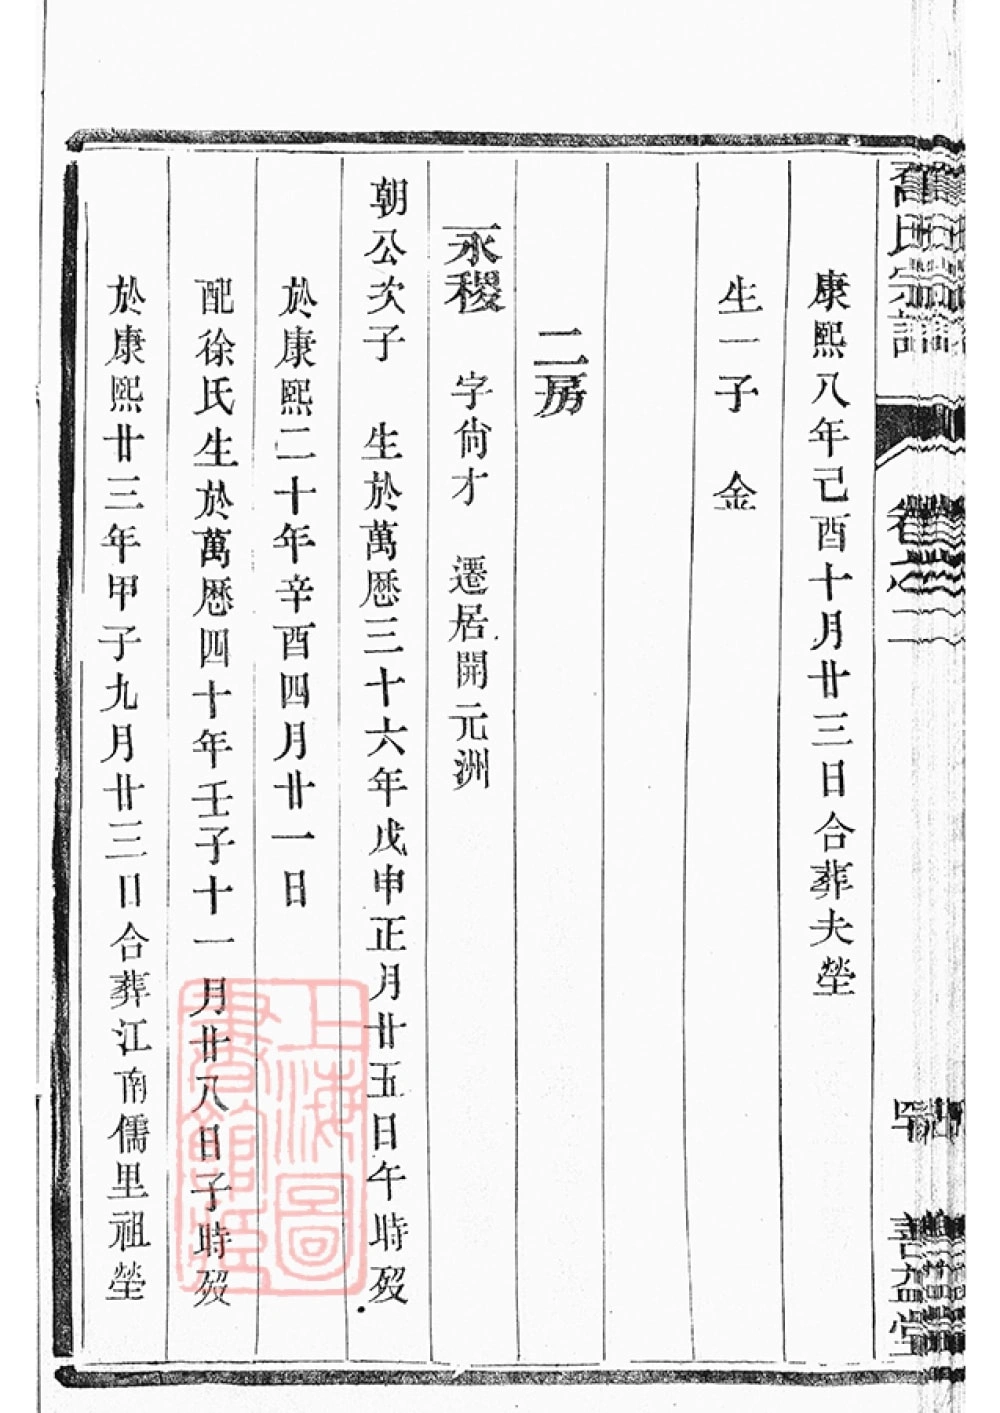 康熙八年己酉十月廿三日合葬夫塋
生一子　金
二房
永稷　字尙才　遷居開元洲
朝公次子　生於萬厯三十六年戊申正月廿五日午時歿
於康熙二十年辛酉四月廿一日
配徐氏生於萬厯四十年壬子十一月廿八日子時歿
於康熙廿三年甲子九月廿三日合葬江南儒里祖塋
氏宗譜
卷之二
善益堂
上海圖
書館藏